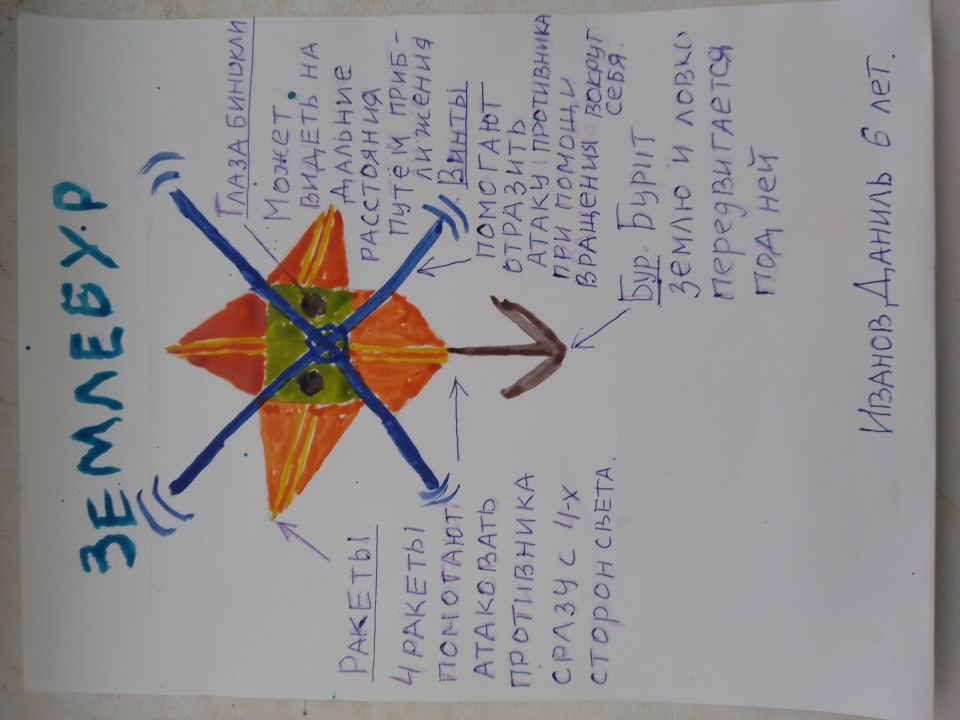 ЗЕМЛЕБУР
ГЛАЗА БИНИКЛИ
МОЖЕТ
ВИДЕТЬ НА
ДАЛЬНИЕ
РАССТОЯНИЯ
ПУТЁМ ПРИБ-
ЛИЖЕНИЯ
ВИНТЫ
ПОМОГАЮТ
ОТРАЗИТЬ
АТАКУ ПРОТИВНИКА
ПРИ ПОМОЩИ
ВРАЩЕНИЯ ВОКРУГ
СЕБЯ.
БУР. БУРИТ
ЗЕМЛЮ И ЛОВКО
ПЕРЕДВИГАЕТСЯ
ПОД НЕЙ
РАКЕТЫ
4 РАКЕТЫ
ПОМОГАЮТ
АТАКОВАТЬ
ПРОТИВНИКА
СРАЗУ С 4-Х
СТОРОН СВЕТА.
ИВАНОВ ДАНИЛЬ 6 ЛЕТ.